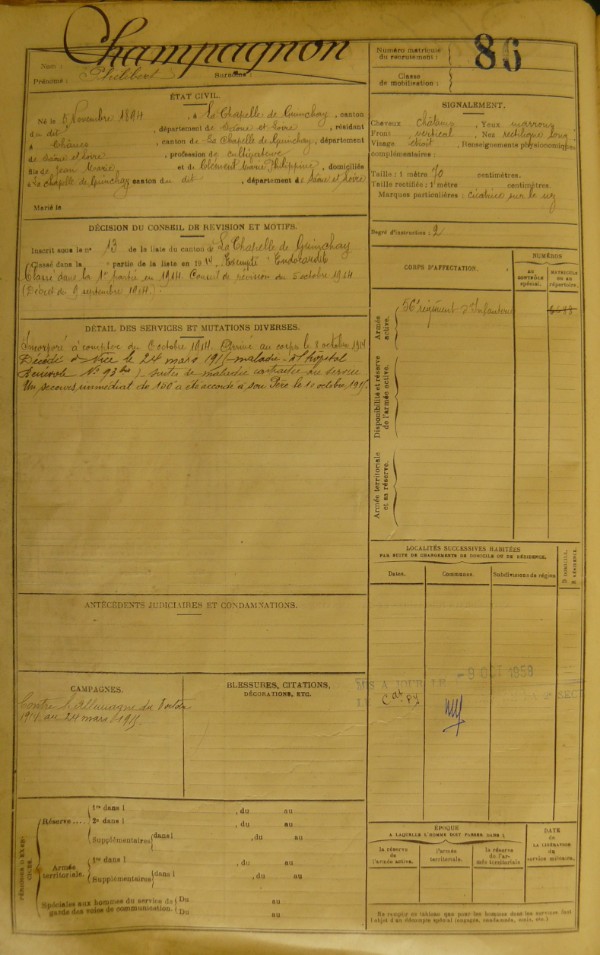 Nom : Champagnon
Prénoms : Philibert Surnoms :
Numéro matricule
du recrutement :
86
Classe
de mobilisation :
ÉTAT CIVIL.
Né le 5 Novembre 1894, à La Chapelle de Guinchay, canton
du dit, département de Saône et Loire, résidant
à Chânes, canton de La Chapelle de Guinchay, département
de Saône et Loire, profession de cultivateur
fils de Jean Marie et de Clément Marie Philippine, domiciliés
à la chapelle de Guinchay canton du dit, département de Saône et Loire
Marié le
SIGNALEMENT.
Cheveux châtains, Yeux marrons
Front vertical, Nez rectiligne long
Visage étroit, Renseignements physionomiques
complémentaires :
Taille : 1 mètre 70 centimètres.
Taille rectifiée : 1 mètre centimètres.
Marques particulières : cicatrice sur le nez
Degré d'instruction : 2
DÉCISION DU CONSEIL DE RÉVISION ET MOTIFS.
Inscrit sous le n° 13 de la liste du canton de La Chapelle de Guinchay
Classé dans la partie de la liste en 1914, Exempté Endocardite
Classé dans la 1re partie en 1914. Conseil de révision du 5 octobre 1914
(Décret du 9 septembre 1914)
CORPS D'AFFECTATION.
NUMÉROS
AU
CONTRÔLE
SPÉCIAL.
MATRICULE
OU AU
RÉPERTOIRE.
Armée
active.
56e régiment d'Infanterie
DÉTAIL DES SERVICES ET MUTATIONS DIVERSES.
Incorporé à compter du 8 octobre 1914. Arrivé au corps le 8 octobre 1914
Décédé à Nice le 24 mars 1915 maladie hôpital
bénévole N° 93 bis) suites de maladie contractée au service
Un secours immédiat de 150 a été accordé à son Père le 10 octobre 1915.
Disponibilité et réserve
de l'armée active.
Armée territoriale
et sa réserve.
LOCALITÉS SUCCESSIVES HABITÉES
PAR SUITE DE CHANGEMENTS DE DOMICILE OU DE RÉSIDENCE.
Dates.
Communes.
Subdivisions de région
D. DOMICILE.
R. RÉSIDENCE.
ANTÉCÉDENTS JUDICIAIRES ET CONDAMNATIONS.
MIS A JOUR LE
1958
CAMPAGNES.
Contre l'Allemagne du 8 octobre
1914 au 24 mars 1915
BLESSURES, CITATIONS,
DÉCORATIONS, ETC.
PÉRIODES D'EXERCICES.
Réserve
1re dans l , du au
2e dans l , du au
Supplémentaires dans l , du au
Armée
territoriale.
1re dans l , du au
Supplémentaires dans l , du au
Spéciales aux hommes du service de
garde des voies de communication.
Du au
Du au
ÉPOQUE
A LAQUELLE L'HOMME DOIT PASSER DANS :
la réserve
de
l'armée active.
l'armée
territoriale.
la réserve
de l'ar-
mée territoriale
DATE
DE
LA LIBÉRATION
DU
service militaire.